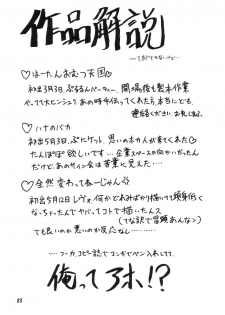 作品解説
―てほどでもないけど…
♡はーたんおむつ天国♡
初出3月3日、ぷるるんパーティー、開場後も製本作業
やってて大ピンシュ!あの時手伝ってくれた方、本当にども、
連絡ください、お礼します。
♡ハナのバカ
初出5月3日、ぷにケット、思いのホカ人が来てくれた♡
たんぽぽ欲しいです…企業スペースの向かいだったん
だけど、あのサイン会は苦業に見えた…
♡全然変わってねーじゃん
初出5月12日レヴォ、何かどれみばかり描いてて頭身低く
なっちゃったんでヤバッてコトで描いたんス
(てな訳で冒頭あんな〉)
ても良いのか悪いのか反応なし…
…つーか、コピー誌でコンガやペン入れしてて、
俺ってアホ!?